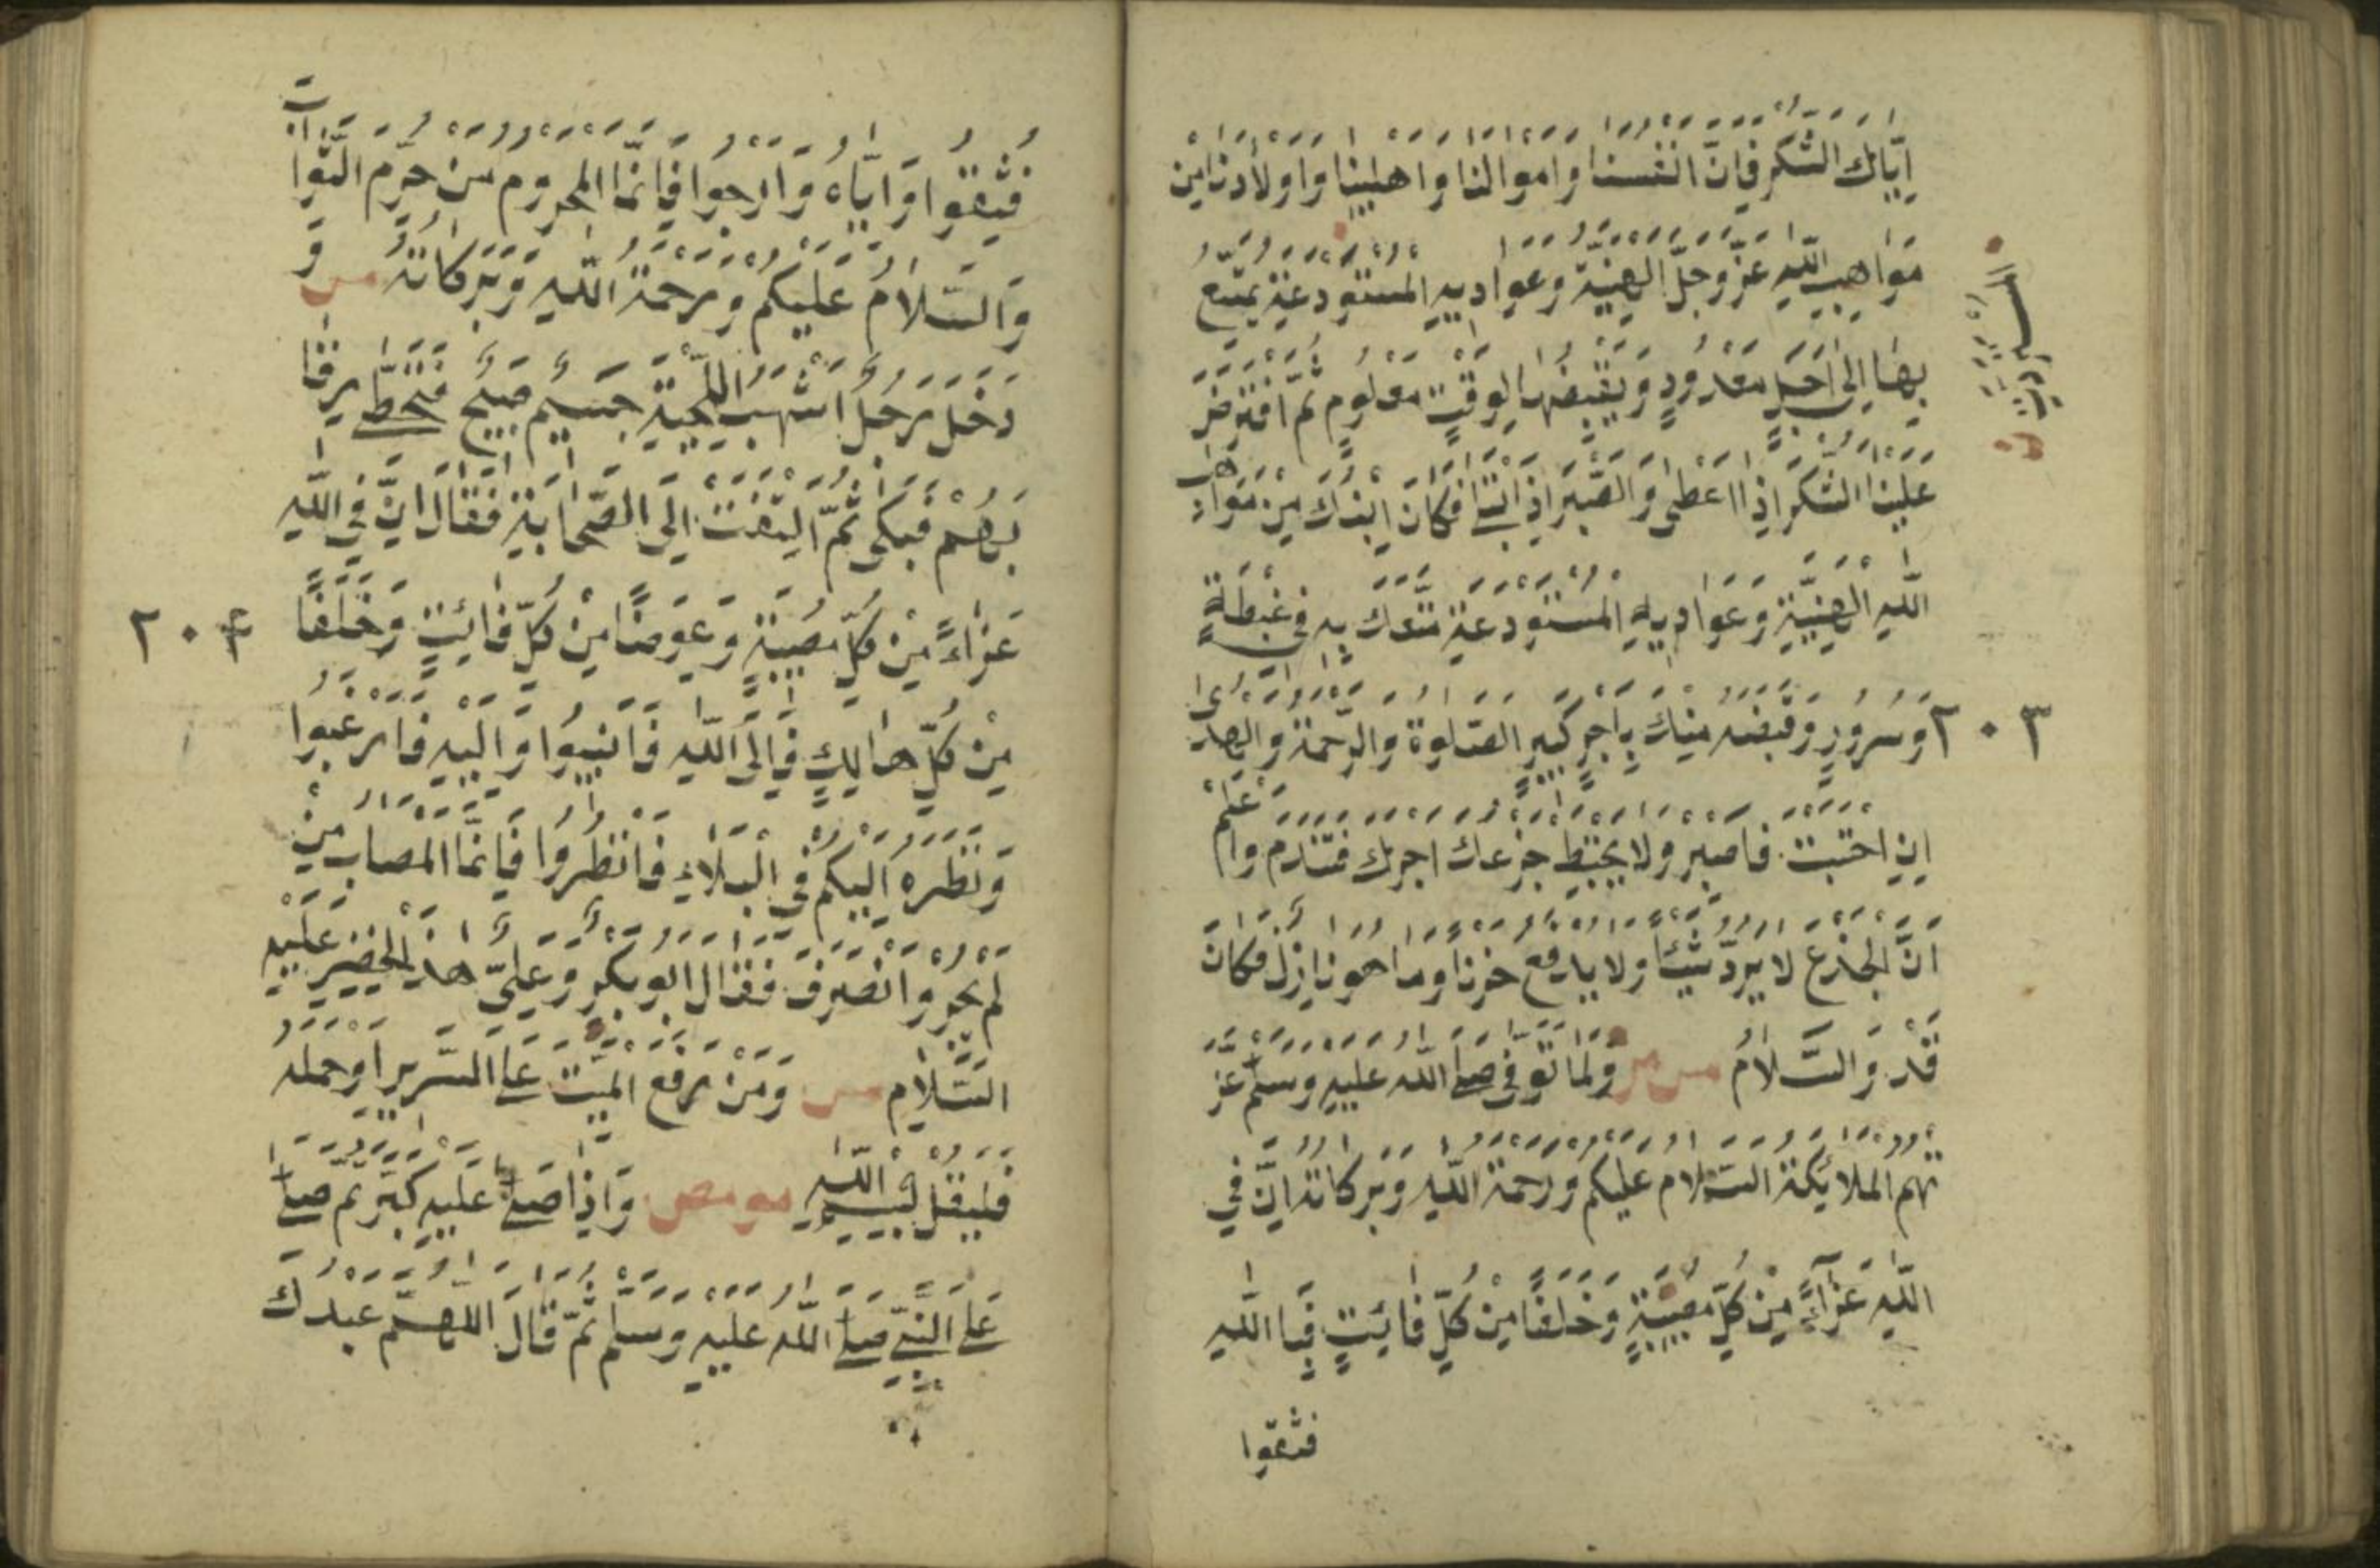 اِيَّاكَ الشُّكْرَ فَاِنَّ اَنْفُسَنَا وَاَمْوَالَنَا وَاَهْلِيْنَا وَاَوْلَادَنَا مِنْ
مَوَاهِبِ اللّٰهِ عَزَّ وَجَلَّ الْهَنِيَّةِ وَعَوَادِيهِ الْمُسْتَوْدَعَةِ يُمَتَّعُ
بِهَا اِلٰى اَجَلٍ مَعْدُودٍ وَيَقْبِضُهَا لِوَقْتٍ مَعْلُومٍ ثُمَّ افْتَرَضَ
عَلَيْنَا الشُّكْرَ اِذَا اَعْطٰى وَالصَّبْرَ اِذَا ابْتَلٰى فَكَانَ ابْنُكَ مِنْ مَوَاهِبِ
اللّٰهِ الْهَنِيَّةِ وَعَوَادِيهِ الْمُسْتَوْدَعَةِ مَتَّعَكَ بِهِ فِي غِبْطَةٍ
وَسُرُورٍ وَقَبَضَهُ مِنْكَ بِاَجْرٍ كَبِيرٍ الصَّلٰوةُ وَالرَّحْمَةُ وَالْهُدٰى
٢٠٣
اِنِ احْتَسَبْتَ فَاصْبِرْ وَلَا يُحْبِطْ جَزَعُكَ اَجْرَكَ فَتَنْدَمَ وَاعْلَمْ
اَنَّ الْجَزَعَ لَا يَرُدُّ شَيْئًا وَلَا يَدْفَعُ حُزْنًا وَمَا هُوَ نَازِلٌ فَكَانَ
قَدْ وَالسَّلَامُ مس مر وَلَمَّا تُوُفِّيَ صَلَّى اللّٰهُ عَلَيْهِ وَسَلَّمَ عَزَّ
تْهُمُ الْمَلَائِكَةُ السَّلَامُ عَلَيْكُمْ وَرَحْمَةُ اللّٰهِ وَبَرَكَاتُهُ اِنَّ فِي
اللّٰهِ عَزَآءً مِنْ كُلِّ مُصِيبَةٍ وَخَلَفًا مِنْ كُلِّ فَائِتٍ فَبِا اللّٰهِ
فثقوا
فَثِقُوا وَاِيَّاهُ وَارْجُوا فَاِنَّمَا الْمَحْرُومُ مَنْ حُرِمَ الثَّوَابَ
وَالسَّلَامُ عَلَيْكُمْ وَرَحْمَةُ اللّٰهِ وَبَرَكَاتُهُ مس وَ
دَخَلَ رَجُلٌ اَشْهَبُ اللِّحْيَةِ جَسِيْمٌ صَبِيْحٌ فَتَخَطّٰى رِقَا
بَهُمْ فَبَكٰى ثُمَّ الْتَفَتَ اِلَى الصَّحَابَةِ فَقَالَ اِنَّ فِي اللّٰهِ
عَزَاءً مِنْ كُلِّ مُصِيبَةٍ وَعِوَضًا مِنْ كُلِّ فَائِتٍ وَخَلَفًا
٢٠٤
مِنْ كُلِّ هَالِكٍ فَاِلَى اللّٰهِ فَاَنِيبُوا وَاِلَيْهِ فَارْغَبُوا
وَنَظَرُهُ اِلَيْكُمْ فِي الْبَلَاءِ فَانْظُرُوا فَاِنَّمَا الْمُصَابُ مَنْ
لَمْ يُجْبَرْ وَانْصَرَفَ فَقَالَ اَبُو بَكْرٍ وَعَلِيٌّ هٰذَا الْخَضِرُ عَلَيْهِ
السَّلَامُ مس وَمَنْ رَفَعَ الْمَيِّتَ عَلَى السَّرِيرِ اَوْ حَمَلَهُ
فَلْيَقُلْ بِسْمِ اللّٰهِ مو مص وَاِذَا صَلّٰى عَلَيْهِ كَبَّرَ ثُمَّ صَلّٰى
عَلَى النَّبِيِّ صَلَّى اللّٰهُ عَلَيْهِ وَسَلَّمَ ثُمَّ قَالَ اللّٰهُمَّ عَبْدُكَ